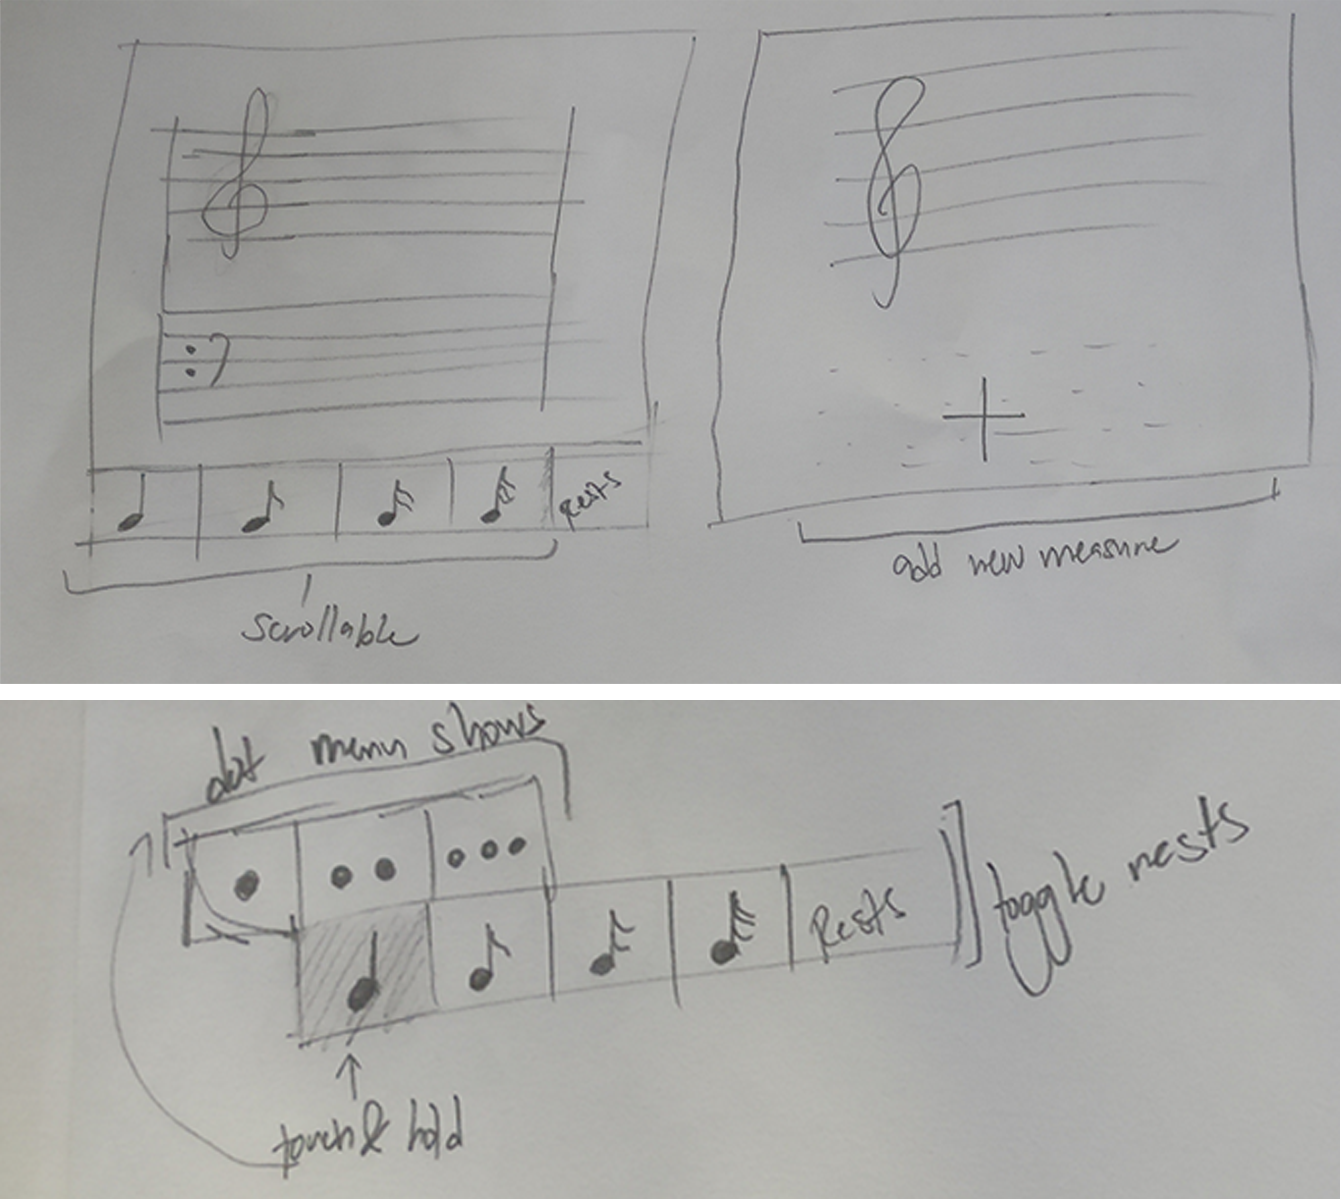 Rests
scrollable
add new measure
dot menu shows
Rests
toggle rests
touch & hold